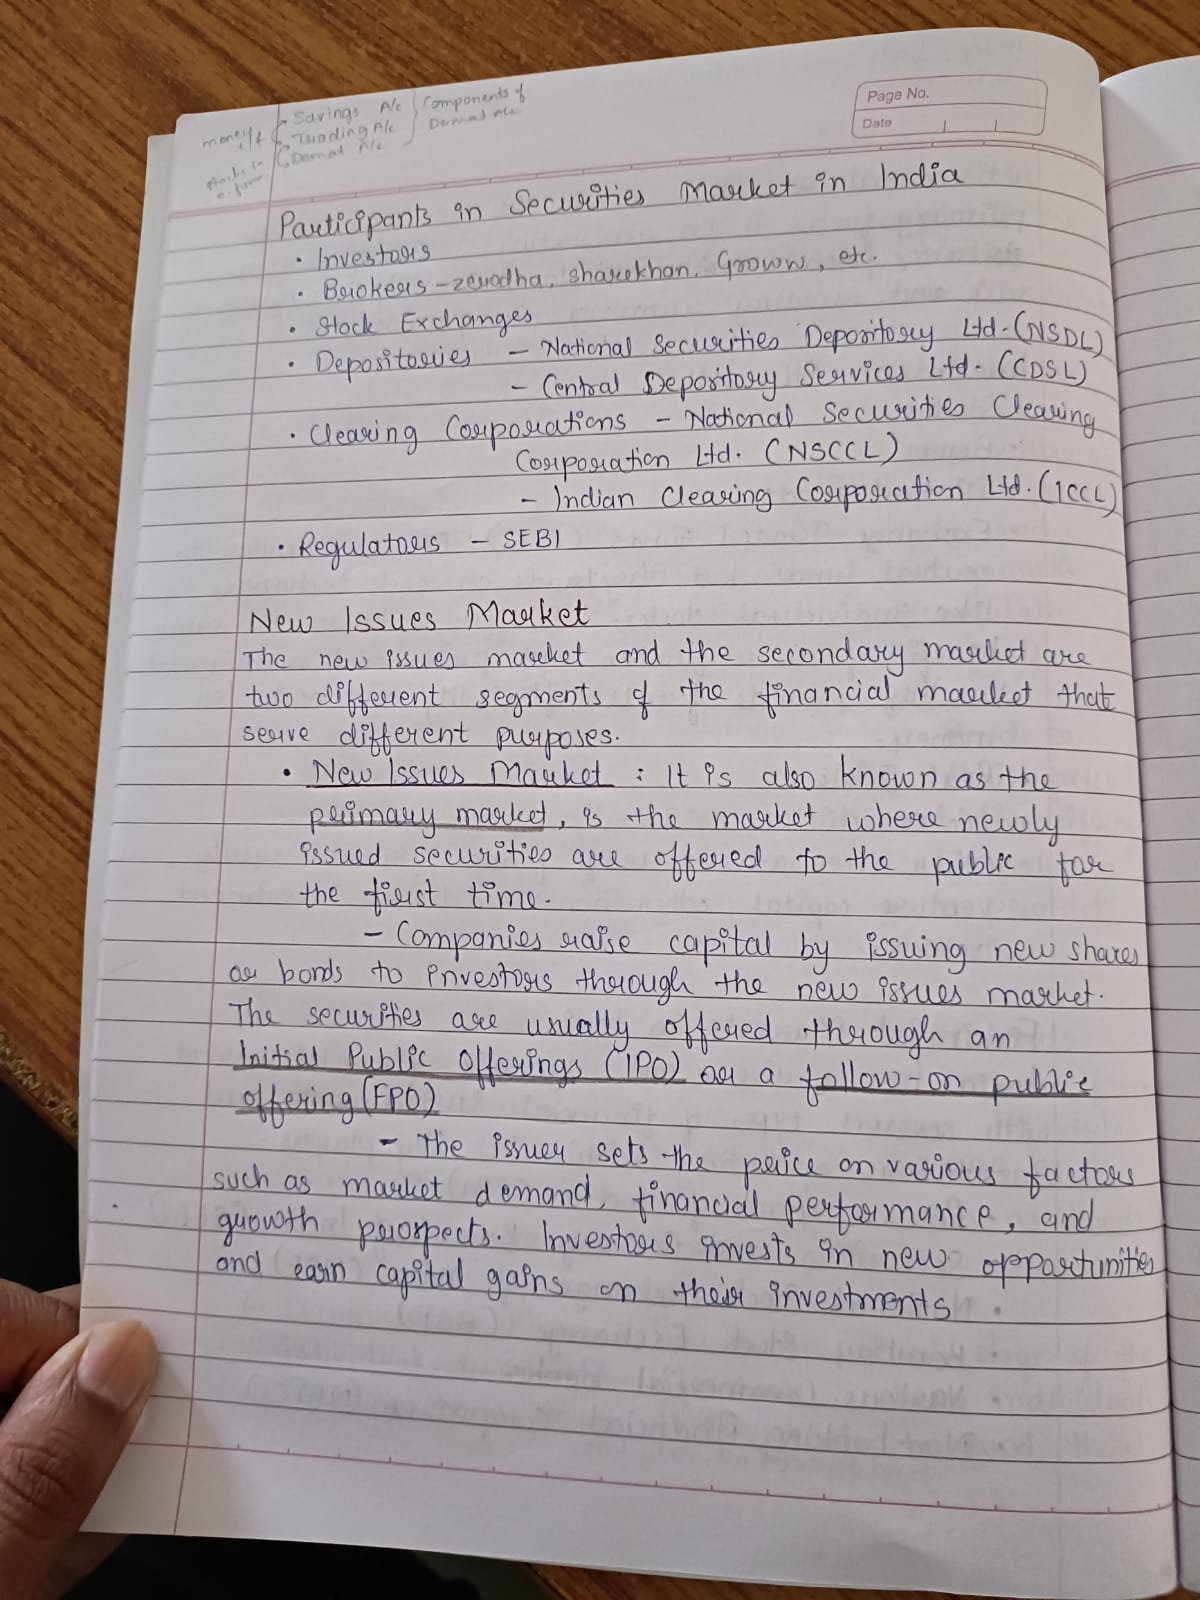 Savings A/c
Trading A/c
Demat A/c
Components of
Demat A/c
money
Page No.
Date
Participants in Securities Market in India
• Investors
• Brokers - zerodha, sharekhan, Groww, etc.
• Stock Exchanges
• Depositories - National Securities Depository Ltd. (NSDL)
- Central Depository Services Ltd. (CDSL)
• Clearing Corporations - National Securities Clearing
Corporation Ltd. (NSCCL)
- Indian Clearing Corporation Ltd. (ICCL)
• Regulators - SEBI
New Issues Market
The new issues market and the secondary market are
two different segments of the financial market that
serve different purposes.
• New Issues Market : It is also known as the
primary market, is the market where newly
issued securities are offered to the public for
the first time.
- Companies raise capital by issuing new shares
or bonds to investors through the new issues market.
The securities are usually offered through an
Initial Public Offerings (IPO) or a follow-on public
offering (FPO)
- The issuer sets the price on various factors
such as market demand, financial performance, and
growth prospects. Investors invests in new opportunities
and earn capital gains on their investments.